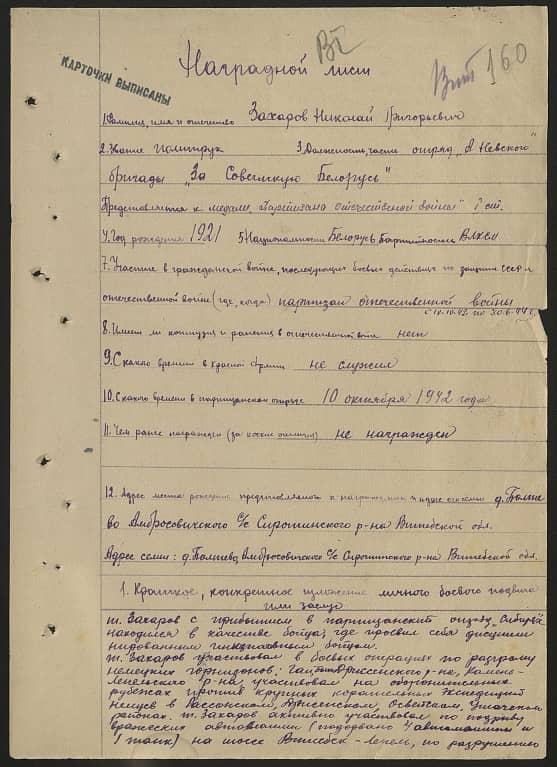 Вт
КАРТОЧКИ ВЫПИСАНЫ
Наградной лист
Вит 160
1. Фамилия, имя и отчество Захаров Николай Григорьевич
2. Звание политрук 3. Должность, часть отряд „А Невского"
бригады „За Советскую Белорусь"
Представляется к медали „Партизана отечественной война" I ст.
4. Год рождения 1921 5 Национальность Белорусь Партийность Влксм
7. Участие в гражданской войне, последующих боевых действиях по защите СССР и
отечественной войне (где, когда) партизан отечественной войны
с 10.10.42 по 30.6.44 г.
8. Имеет ли контузия и ранения в отечественной войне нет
9. С какого времени в красной армии не служил
10. С какого времени в партизанском отряде 10 октября 1942 года
11. Чем ранее награжден (за какие отличия) не награжден
12. Адрес места рождения представляемого к награждению и адрес семьи д.
во Амбросовичского С/с Сиротинского р-на Витебской обл.
Адрес семьи: д. Амбросовичского С/с Сиротинского р-на Витебской обл.
1. Краткое, конкретное изложение личного боевого подвига
или заслуг
т. Захаров с прибытием в партизанский отряд „Сибиряк"
находился в качестве бойца, где проявил себя дисципли
нированным инициативным бойцом.
т. Захаров участвовал в боевых операциях по разгрому
немецких гарнизонов: Дриссенского р-на, Камень-
Лепельского р-на участвовал на оборонительных
рубежах против крупных карательных экспедиций
немцев в Россонском, Дриссенском, Освейском, Ушачском
районах. т. Захаров активно участвовал по подрыву
вражеских автомашин (подорвано 4 автомашины и
1 танк) на шоссе Витебск - Лепель, по разрушению